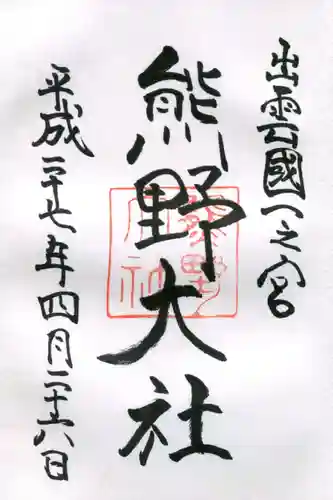 出雲國一之宮
熊野大社
平成二十七年四月二十六日
熊野大社